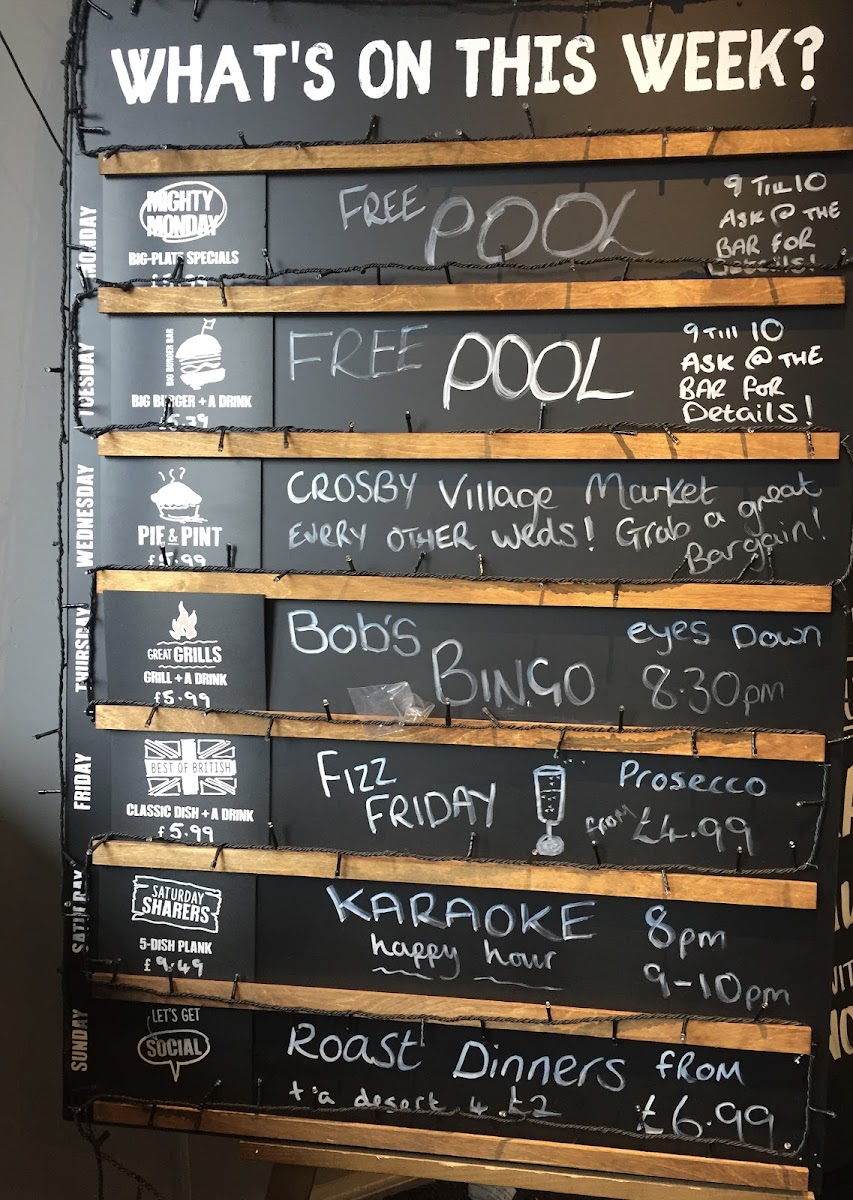 WHAT'S ON THIS WEEK?
MONDAY
MIGHTY
MONDAY
BIG-PLATE SPECIALS
FREE POOL
9 Till 10
ASK @ THE
BAR FOR
Details!
TUESDAY
BIG BURGER BAR
BIG BURGER + A DRINK
FREE POOL
9 Till 10
ASK @ THE
BAR FOR
Details!
WEDNESDAY
PIE & PINT
£5.99
CROSBY Village Market
EVERY OTHER Weds! Grab a great
Bargain!
THURSDAY
GREAT GRILLS
GRILL + A DRINK
£5.99
BOB'S
BINGO
eyes Down
8.30pm
FRIDAY
BEST OF BRITISH
CLASSIC DISH + A DRINK
£5.99
FIZZ
FRIDAY
Prosecco
FROM £4.99
SATURDAY
SATURDAY
SHARERS
5-DISH PLANK
£9.49
KARAOKE 8pm
happy hour 9-10pm
SUNDAY
LET'S GET
SOCIAL
Roast Dinners FROM
+ a desert 4 £2 £6.99